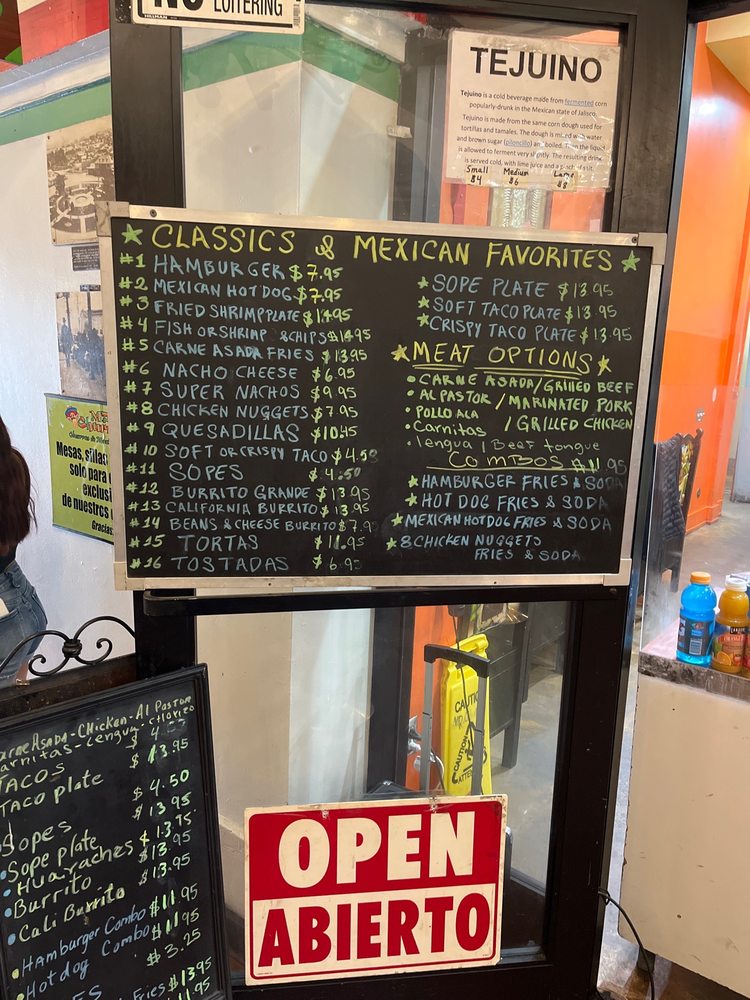 NO LOITERING
HILLMAN
TEJUINO
Tejuino is a cold beverage made from fermented corn
popularly-drunk in the Mexican state of Jalisco.
Tejuino is made from the same corn dough used for
tortillas and tamales. The dough is mixed with water
and brown sugar (piloncillo) and boiled. Then the liquid
is allowed to ferment very slightly. The resulting drink
is served cold, with lime juice and a pinch of salt.
Small Medium Large
$4 $6 $8
CLASSICS & MEXICAN FAVORITES
#1 HAMBURGER $7.95
#2 MEXICAN HOT DOG $7.95
#3 FRIED SHRIMP PLATE
#4 FISH OR SHRIMP & CHIPS $14.95
#5 CARNE ASADA FRIES $13.95
#6 NACHO CHEESE $6.95
#7 SUPER NACHOS $9.95
#8 CHICKEN NUGGETS $7.95
#9 QUESADILLAS $10.45
#10 SOFT OR CRISPY TACO $4.50
#11 SOPES $4.50
#12 BURRITO GRANDE $13.95
#13 CALIFORNIA BURRITO $13.95
#14 BEANS & CHEESE BURRITO $7.9
#15 TORTAS $11.95
#16 TOSTADAS $6.95
SOPE PLATE $13.95
SOFT TACO PLATE $13.95
CRISPY TACO PLATE $13.95
MEAT OPTIONS
• CARNE ASADA/GRILLED BEEF
• AL PASTOR / MARINATED PORK
• POLLO ALA / GRILLED CHICKEN
• Carnitas
• lengua / Beef tongue
COMBOS $11.95
HAMBURGER FRIES & SODA
HOT DOG FRIES & SODA
MEXICAN HOT DOG FRIES & SODA
8 CHICKEN NUGGETS
FRIES & SODA
Mesas, sillas
solo para
exclusi
de nuestros
Gracias
Carne Asada-Chicken-Al Pastor
Carnitas-Lengua-chorizo
TACOS
Taco plate $13.95
Sopes $4.50
• Sope Plate $13.95
• Huaraches $13.95
• Burrito $13.95
• Cali Burrito $13.95
• Hamburger Combo $11.95
• Hot dog Combo $11.95
$3.25
Fries $13.95
11.95
CAUTI
OPEN
ABIERTO